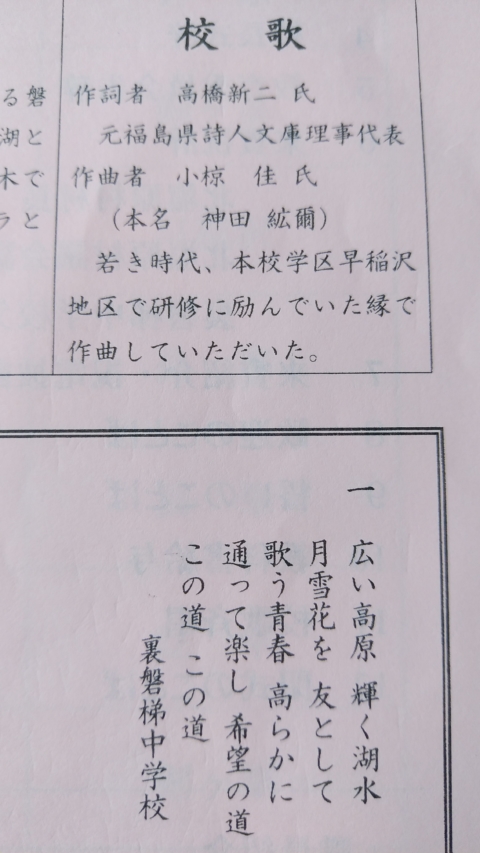 校歌
作詞者 高橋新二 氏
元福島県詩人文庫理事代表
作曲者 小椋 佳 氏
(本名 神田 紘爾)
若き時代、本校学区早稲沢
地区で研修に励んでいた縁で
作曲していただいた。
る磐
湖と
木で
ラと
一
広い高原 輝く湖水
月雪花を 友として
歌う青春 高らかに
通って楽し 希望の道
この道 この道
裏磐梯中学校